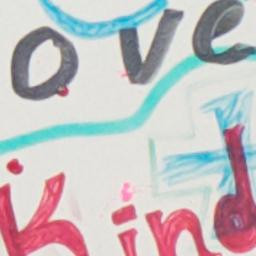 ove
Kind